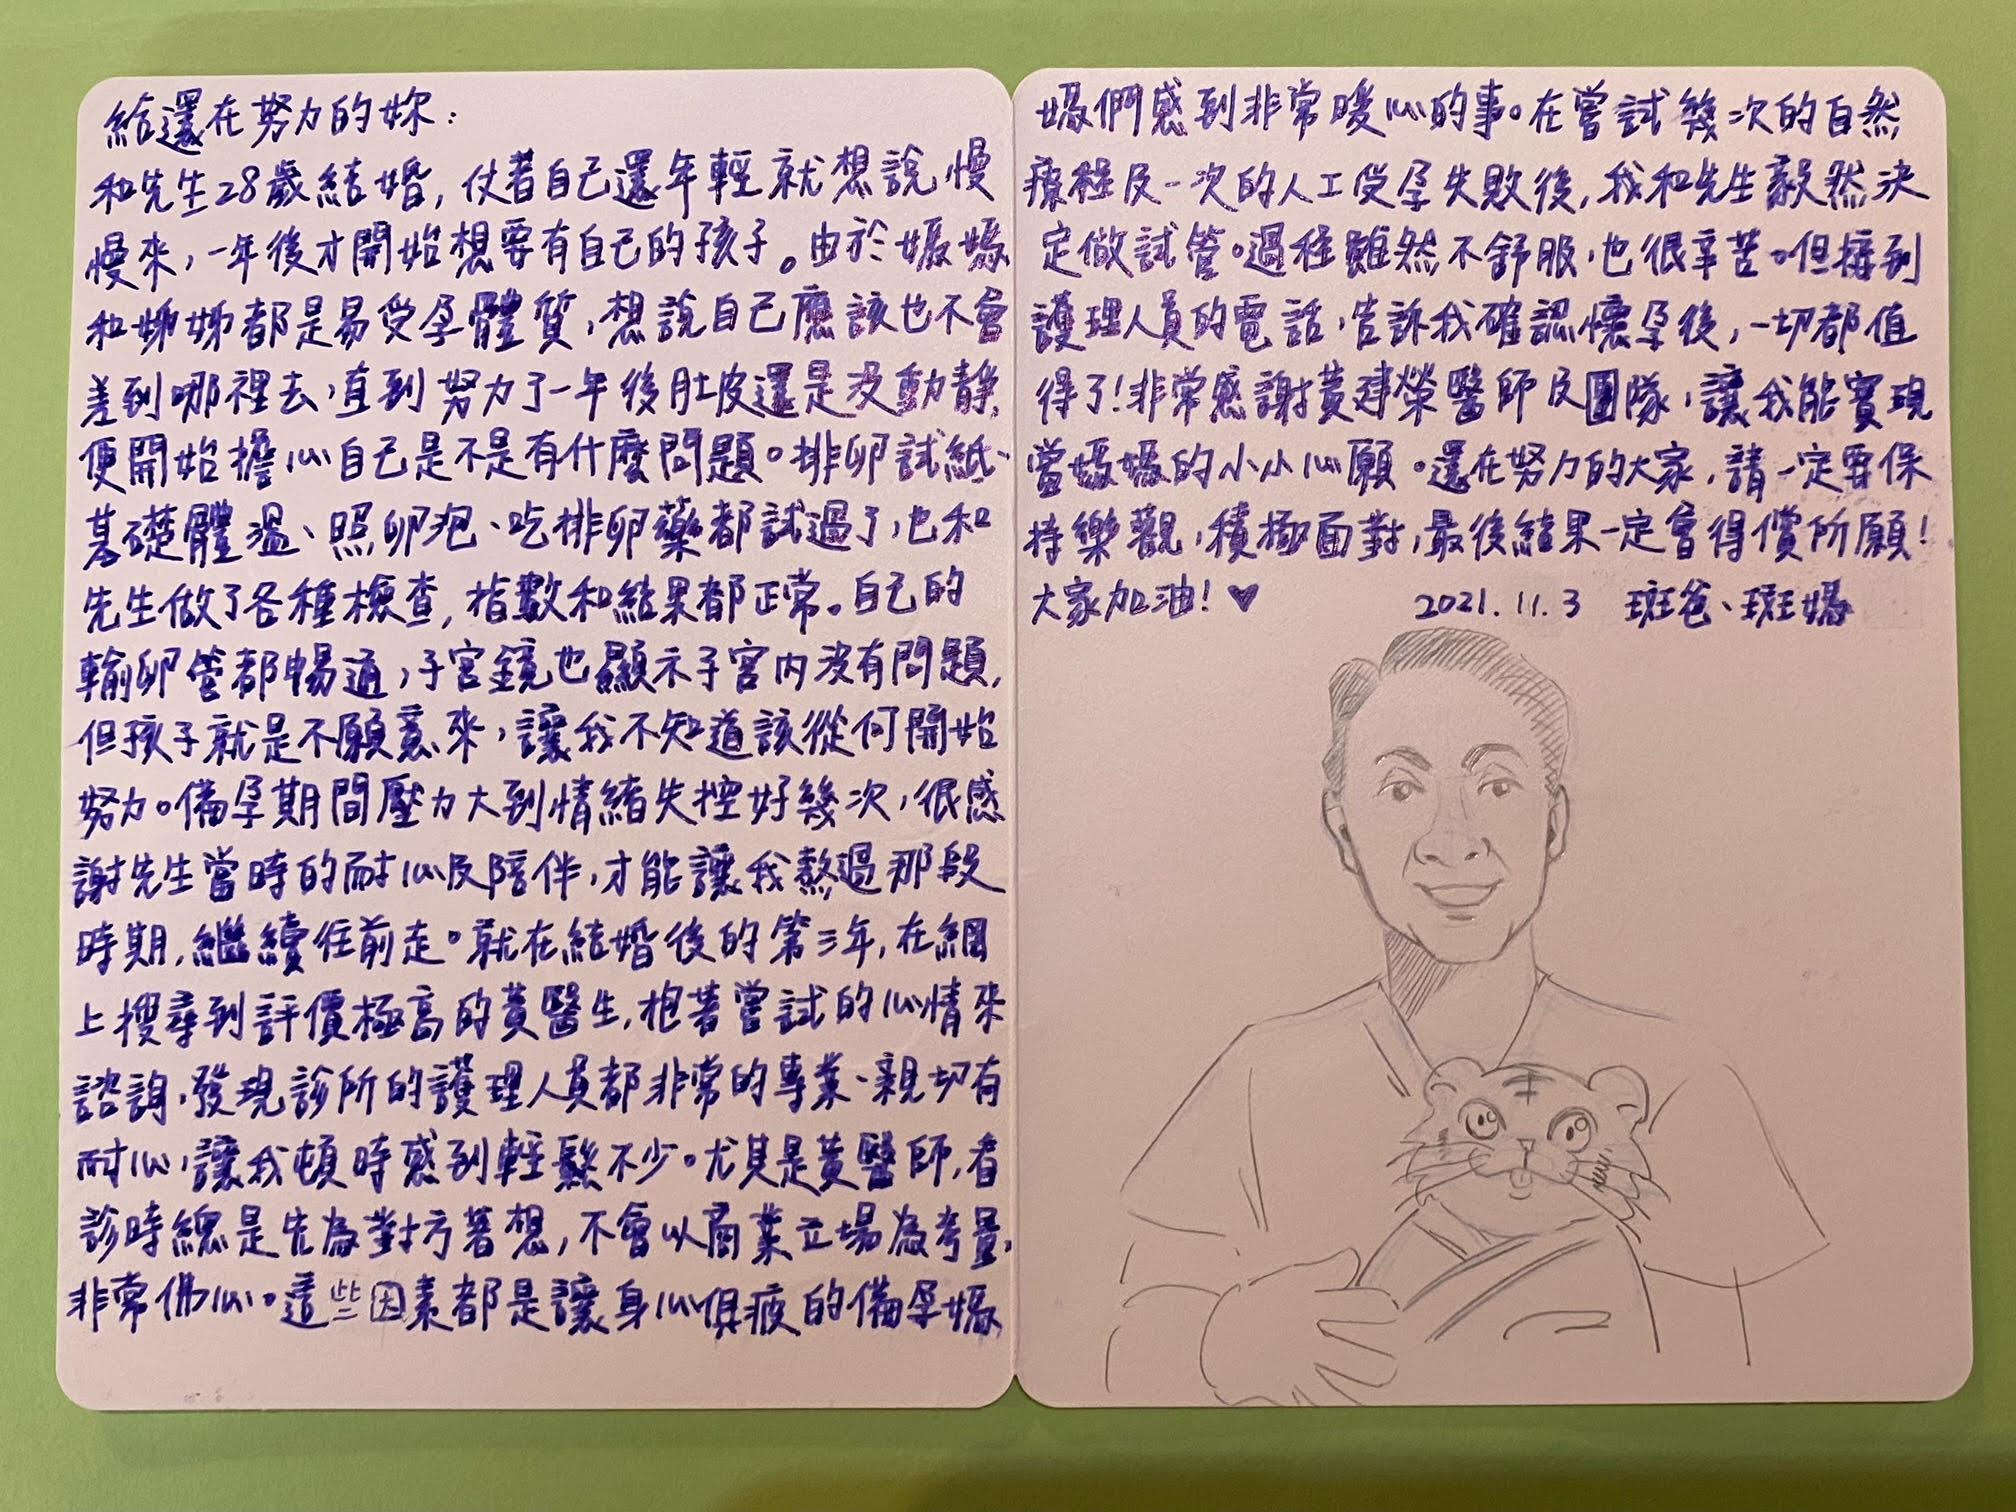 給還在努力的妳：
和先生28歲結婚，仗著自己還年輕就想說慢
慢來，一年後才開始想要有自己的孩子。由於媽媽
和姊姊都是易受孕體質，想說自己應該也不會
差到哪裡去，直到努力了一年後肚皮還是沒動靜，
便開始擔心自己是不是有什麼問題。排卵試紙、
基礎體溫、照卵泡、吃排卵藥都試過了，也和
先生做了各種檢查，指數和結果都正常。自己的
輸卵管都暢通，子宮鏡也顯示子宮內沒有問題，
但孩子就是不願意來，讓我不知道該從何開始
努力。備孕期間壓力大到情緒失控好幾次，很感
謝先生當時的耐心及陪伴，才能讓我熬過那段
時期，繼續往前走。就在結婚後的第三年，在網
上搜尋到評價極高的黃醫生，抱著嘗試的心情來
諮詢，發現診所的護理人員都非常的專業、親切有
耐心，讓我頓時感到輕鬆不少。尤其是黃醫師，看
診時總是先為對方著想，不會以商業立場為考量，
非常佛心。這些因素都是讓身心俱疲的備孕媽
媽們感到非常暖心的事。在嘗試幾次的自然
療程及一次的人工受孕失敗後，我和先生毅然決
定做試管。過程雖然不舒服，也很辛苦。但接到
護理人員的電話，告訴我確認懷孕後，一切都值
得了！非常感謝黃建榮醫師及團隊，讓我能實現
當媽媽的小小心願。還在努力的大家，請一定要保
持樂觀，積極面對，最後結果一定會得償所願！
大家加油！♥ 2021.11.3 斑爸、斑媽